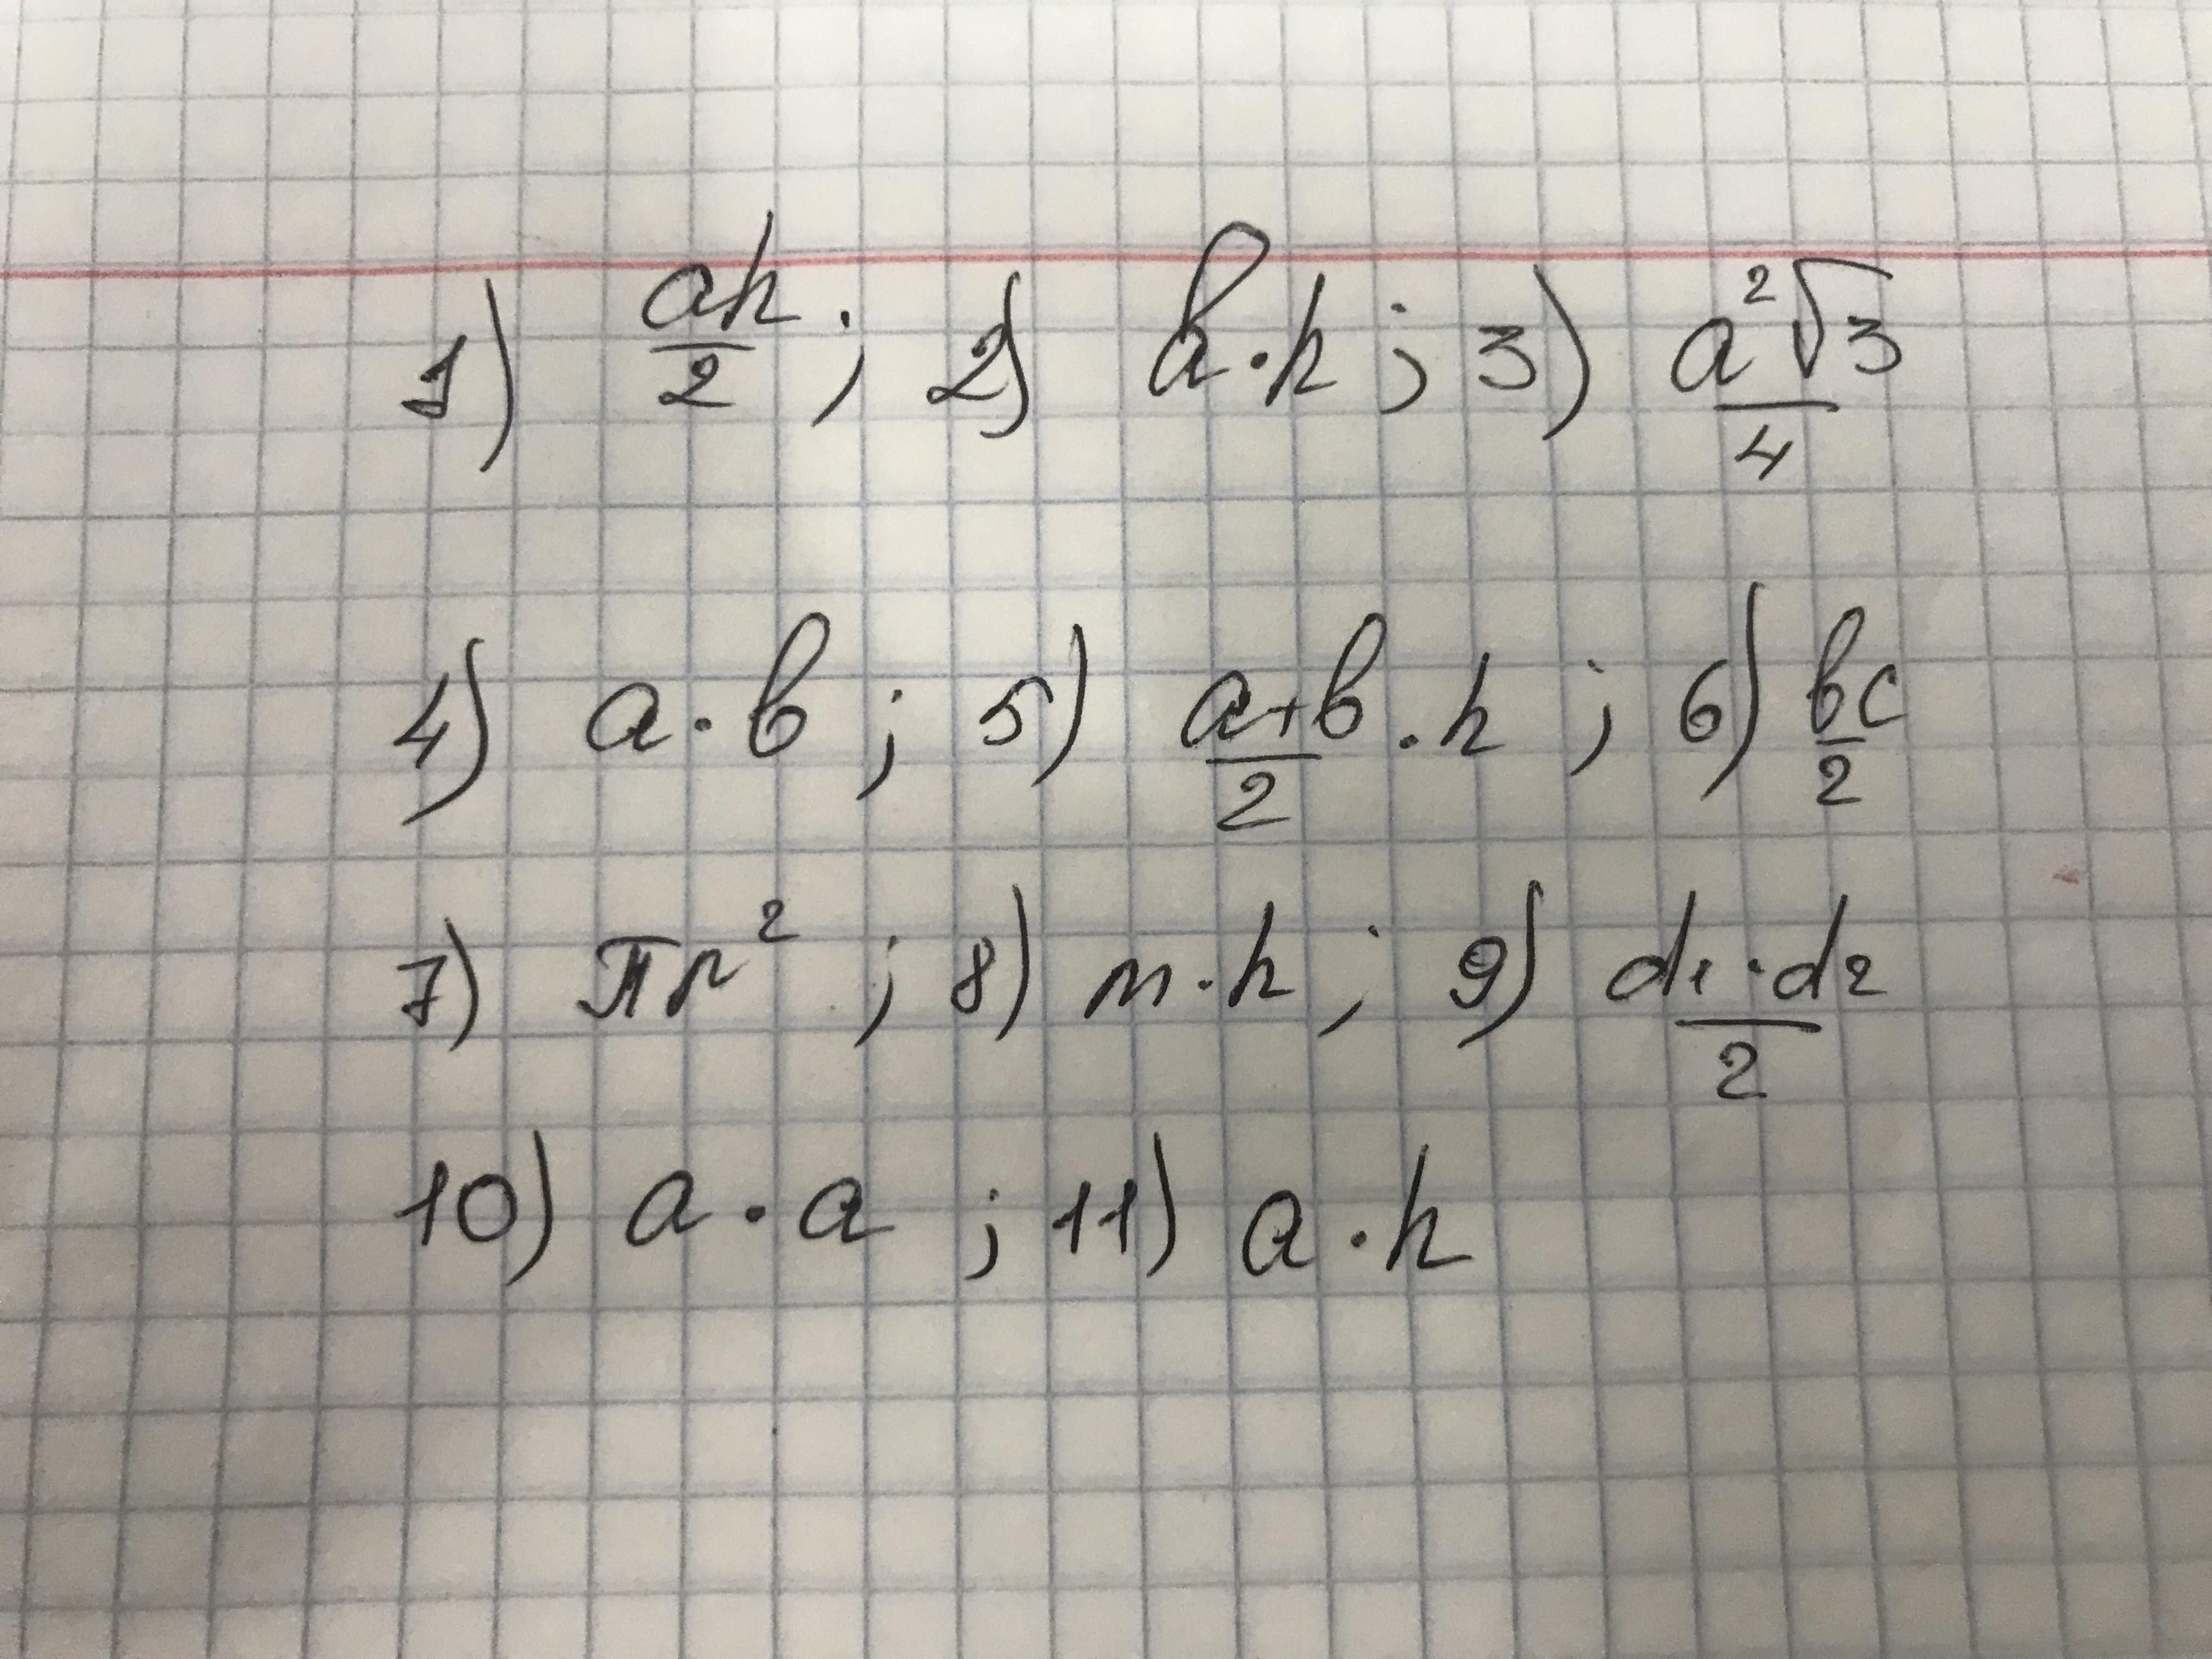 1) ah/2 ; 2) b·h ; 3) a²√3/4
4) a·b ; 5) a+b/2 ·h ; 6) bc/2
7) πr² ; 8) m·h ; 9) d₁·d₂/2
10) a·a ; 11) a·h